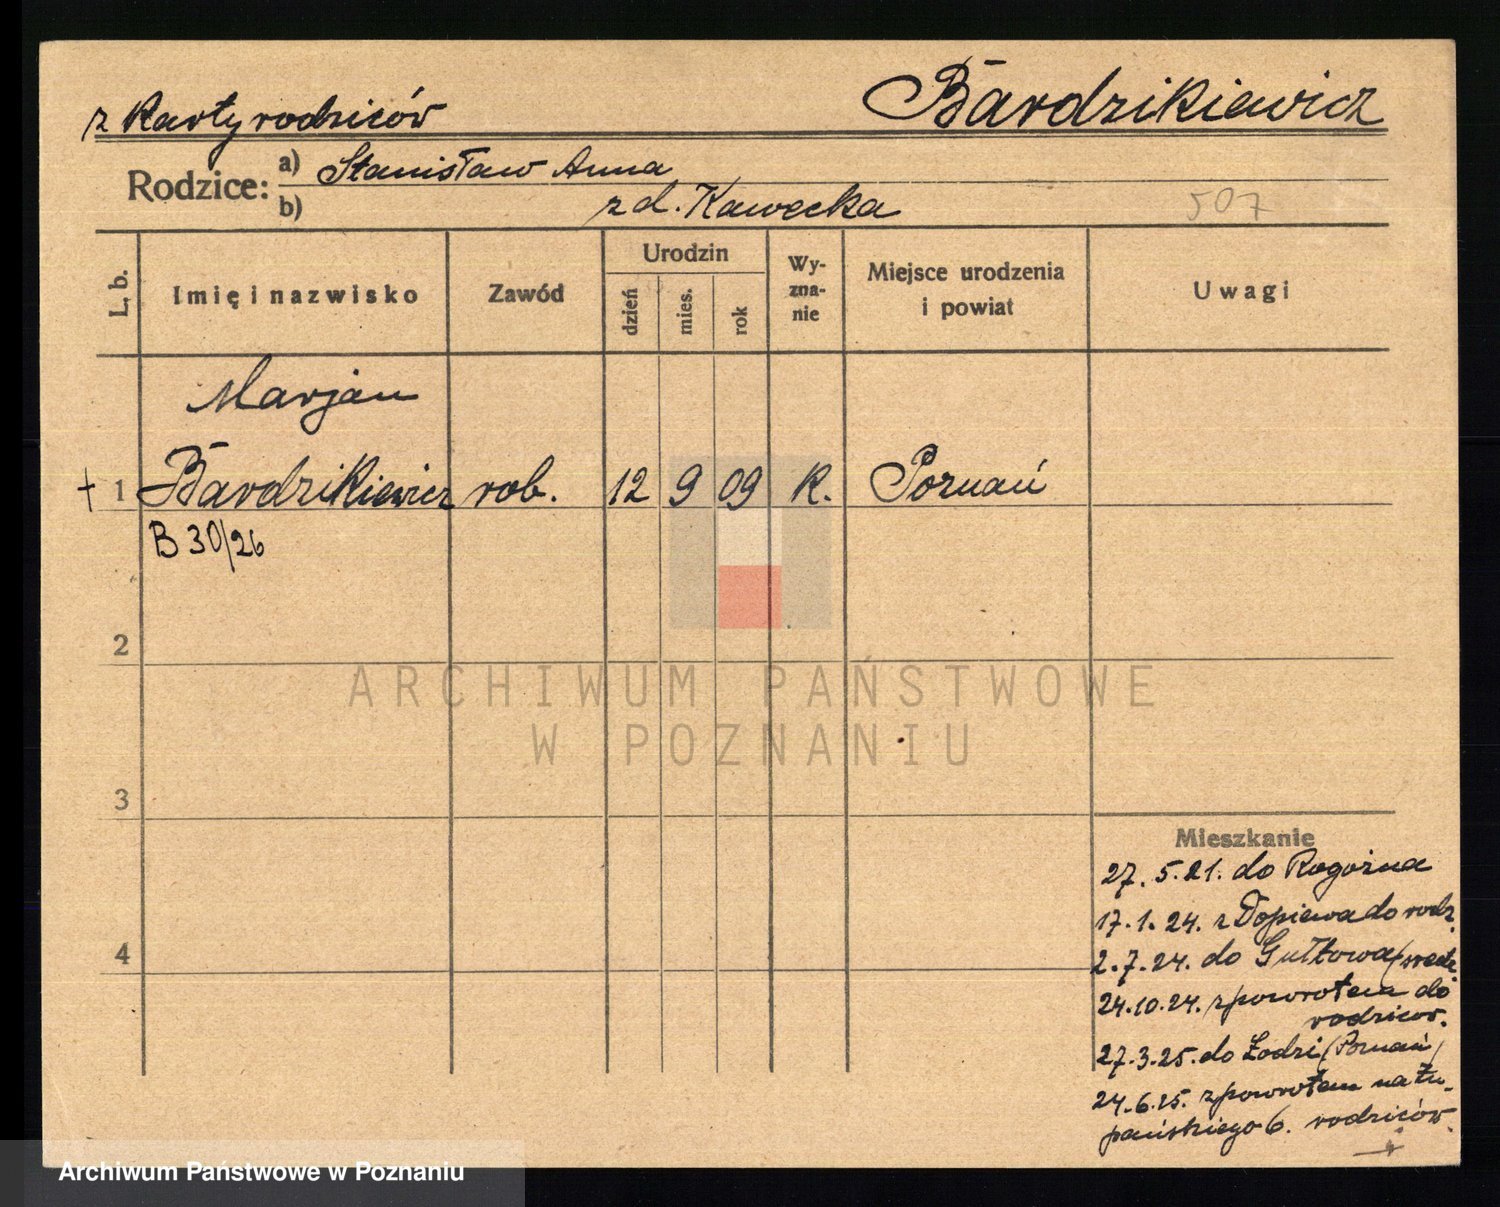 z Karty rodziców
Bardzikiewicz
Rodzice: a) Stanisław Anna
b) z d. Kawecka
507
L. b.
Imię i nazwisko
Zawód
Urodzin
dzień
mies.
rok
Wy-
zna-
nie
Miejsce urodzenia
i powiat
Uwagi
Marjan
† 1 Bardzikiewicz rob. 12 9 09 K. Poznań
B 30/26
2
ARCHIWUM PAŃSTWOWE
W POZNANIU
3
Mieszkanie
27. 5. 21. do Rogoźna
17. 1. 24. z Dopiewa do rodz.
4
2. 7. 24. do Gułtowa
24.10.24. zpowrotem do
rodziców.
27.3.25. do Łodzi (Poznań)
24.6.25. zpowrotem na Łu-
pańskiego 6. rodziców.
Archiwum Państwowe w Poznaniu